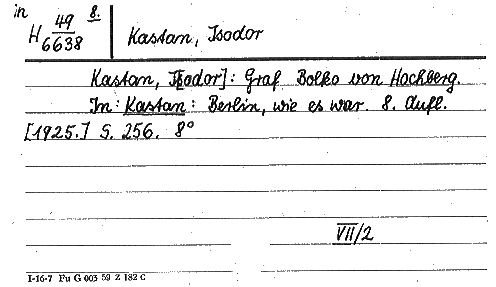 in
H 49/6638 8.
Kastan, Isodor
Kastan, Is[odor]: Graf Bolko von Hochberg.
In: Kastan: Berlin, wie es war. 8. Aufl.
[1925.] S. 256. 8°
VII/2
I-16-7 Fu G 003 59 Z 182 C